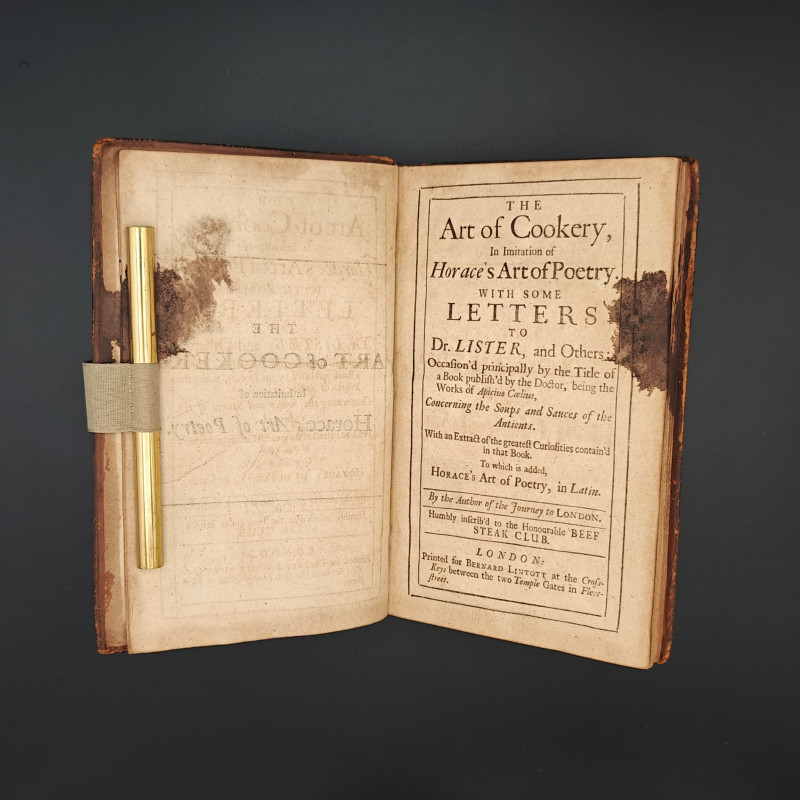 THE
ART of COOKERY
In Imitation of
Horace's Art of Poetry.
THE
Art of Cookery,
In Imitation of
Horace's Art of Poetry.
WITH SOME
LETTERS
TO
Dr. LISTER, and Others:
Occasion'd principally by the Title of
a Book publish'd by the Doctor, being the
Works of Apicius Cœlius,
Concerning the Soups and Sauces of the
Antients.
With an Extract of the greatest Curiosities contain'd
in that Book.
To which is added,
HORACE's Art of Poetry, in Latin.
By the Author of the Journey to LONDON.
Humbly inscrib'd to the Honourable BEEF
STEAK CLUB.
LONDON:
Printed for BERNARD LINTOTT at the Cross-
Keys between the two Temple Gates in Fleet-
street.